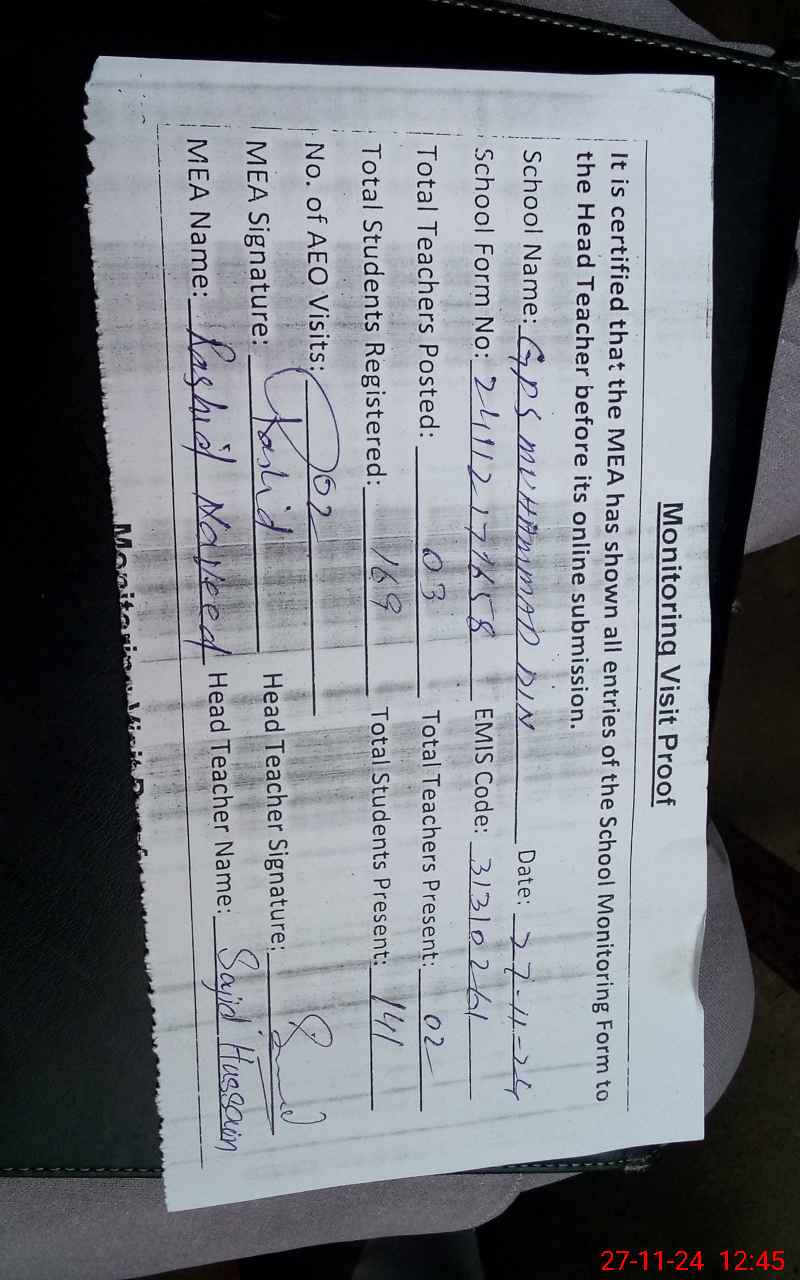 Monitoring Visit Proof
It is certified that the MEA has shown all entries of the School Monitoring Form to
the Head Teacher before its online submission.
School Name: GPS MUHAMMAD DIN Date: 27-11-24
School Form No: 24112177658 EMIS Code: 31310261
Total Teachers Posted: 03 Total Teachers Present: 02
Total Students Registered: 169 Total Students Present: 141
No. of AEO Visits: 02
MEA Signature: Rashid Head Teacher Signature:
MEA Name: Rashid Naveed Head Teacher Name: Sajid Hussain
Monitoring Visit Proof
27-11-24 12:45